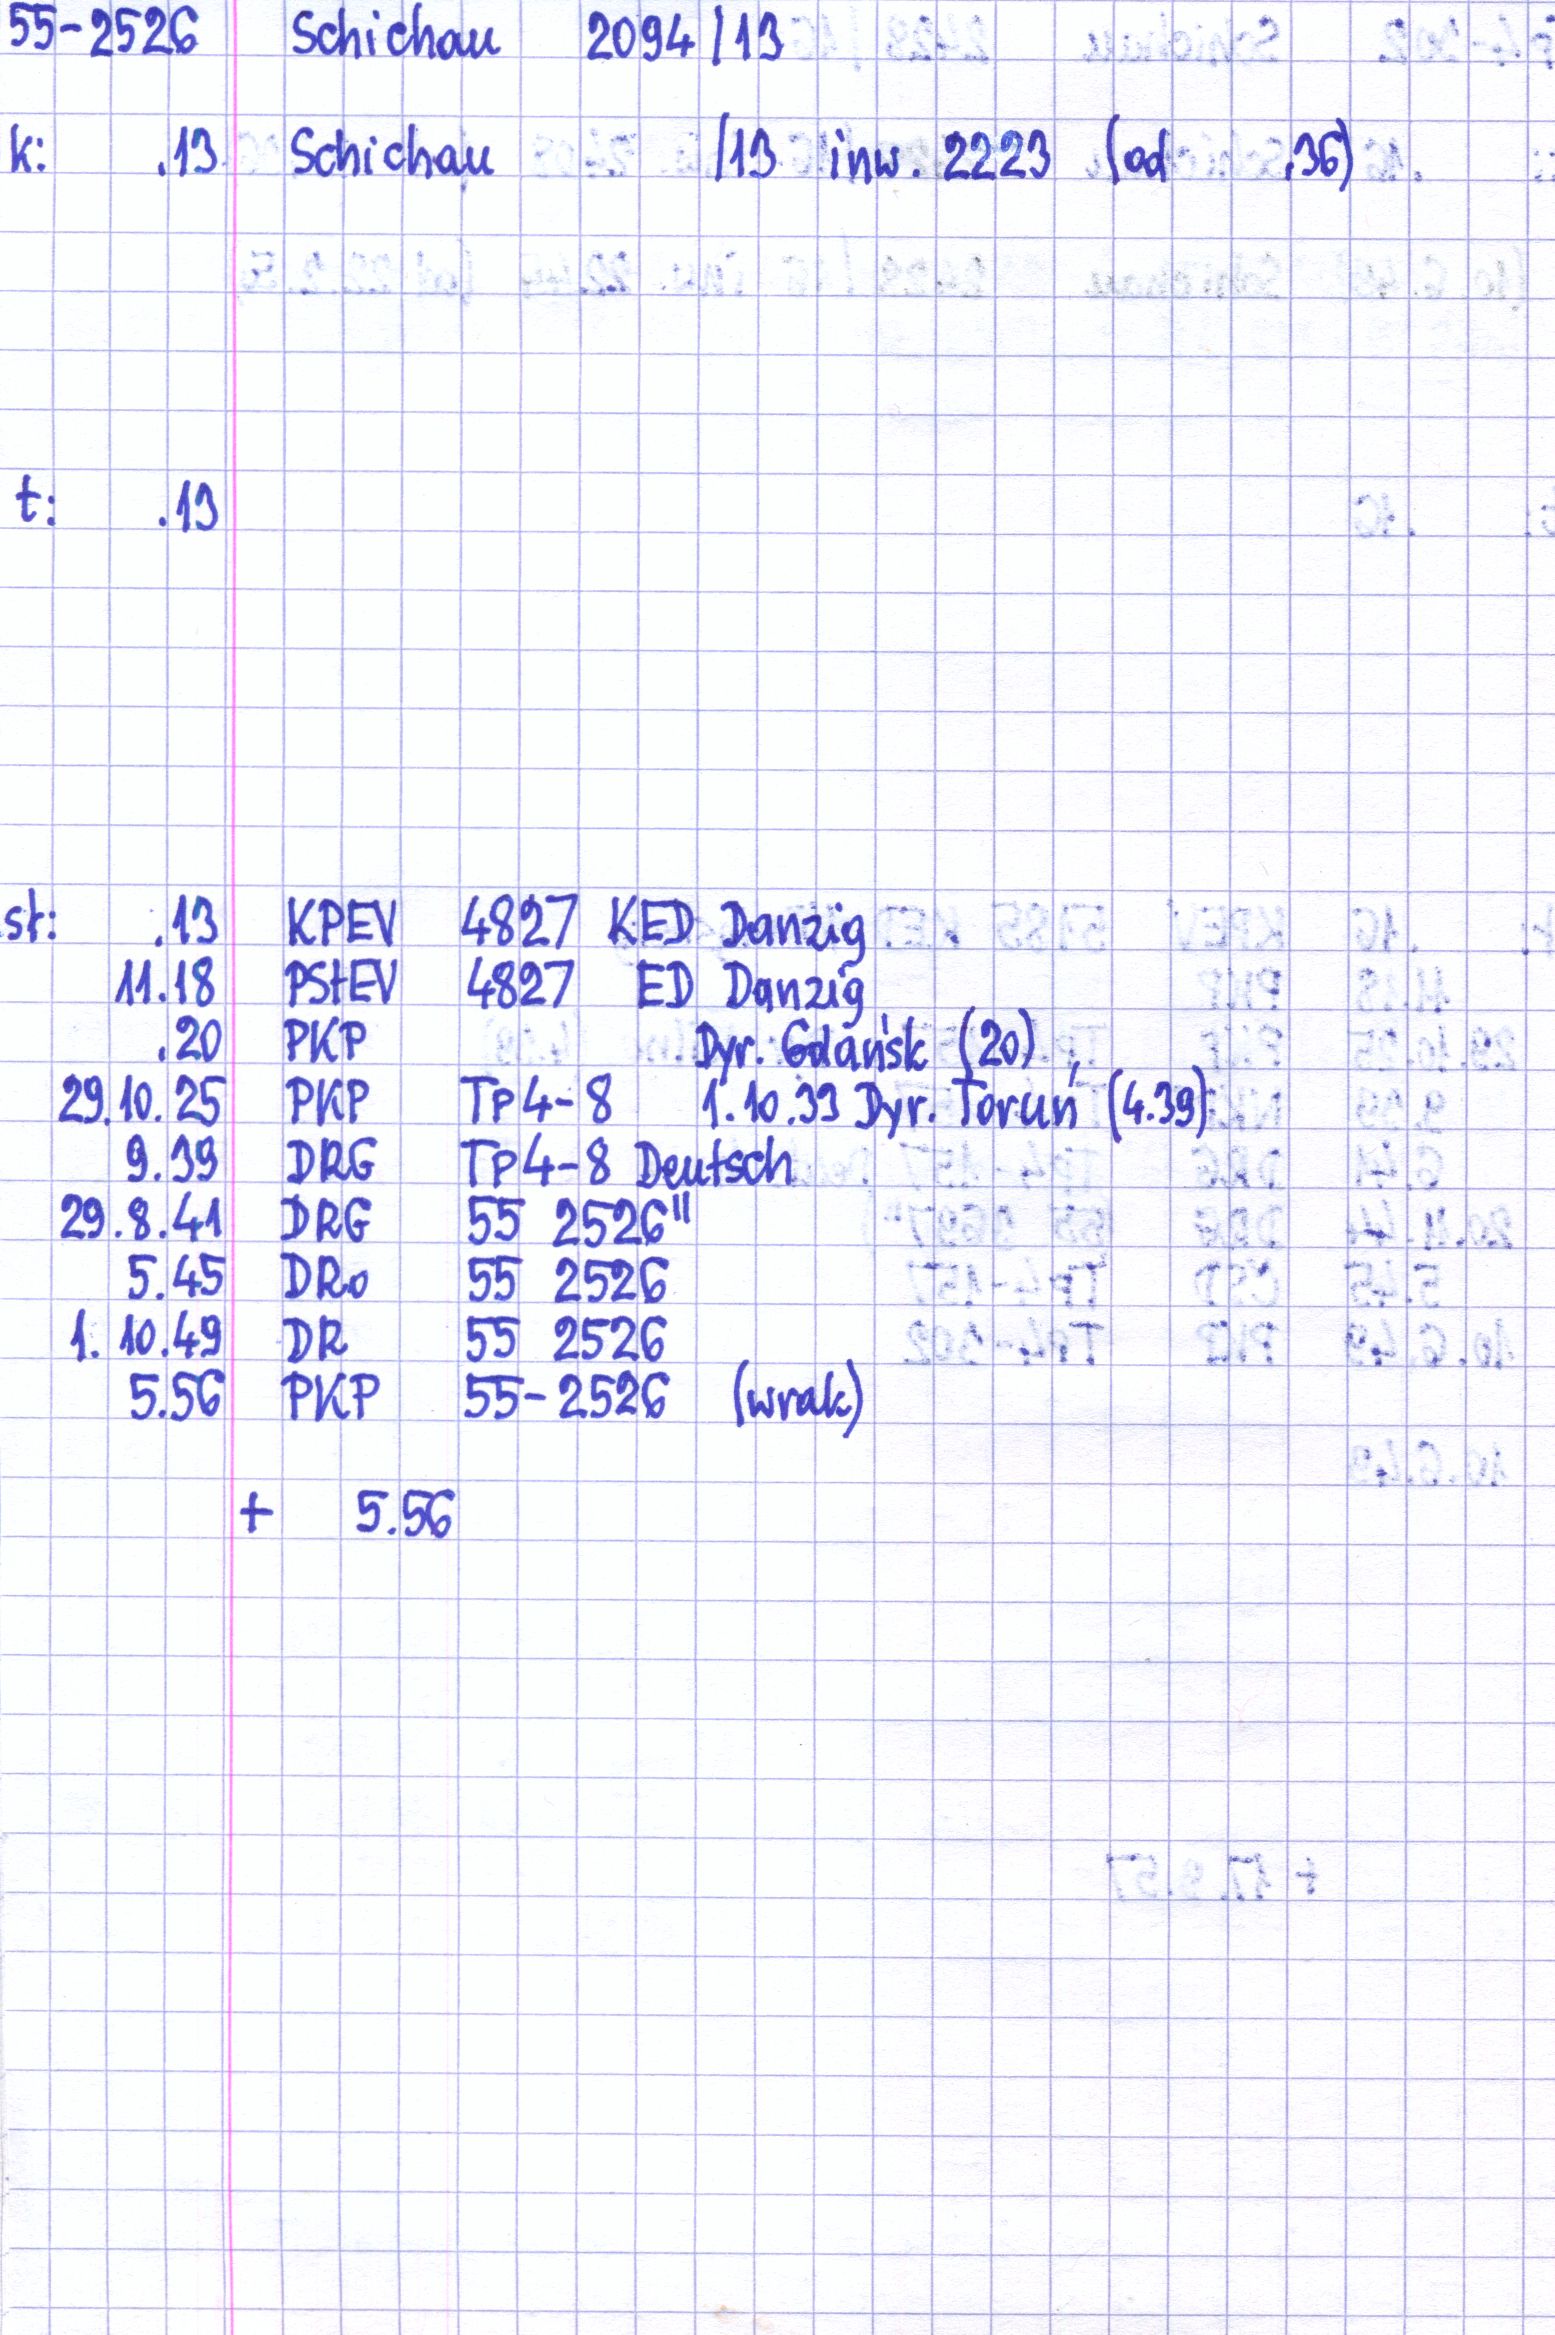 55-2526 Schichau 2094/13
k: .13 Schichau /13 inw. 2223 (od .36)
t: .13
st: .13 KPEV 4827 KED Danzig
11.18 PStEV 4827 ED Danzig
.20 PKP Dyr. Gdańsk (20)
29.10.25 PKP Tp4-8 1.10.33 Dyr. Toruń (4.39)
9.39 DRG Tp4-8 Deutsch
29.8.41 DRG 55 2526"
5.45 DRo 55 2526
1.10.49 DR 55 2526
5.56 PKP 55-2526 (wrak)
+ 5.56